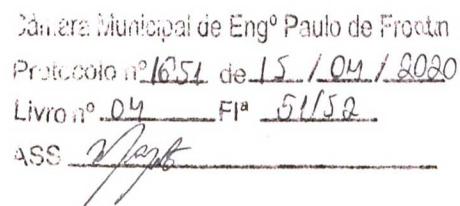 Câmara Municipal de Engº Paulo de Frontin
Protocolo nº 1651 de 15 / 04 / 2020
Livro nº 04 Flª 51/52
ASS